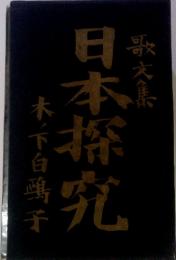 歌文集
日本探究
木下白鴎子